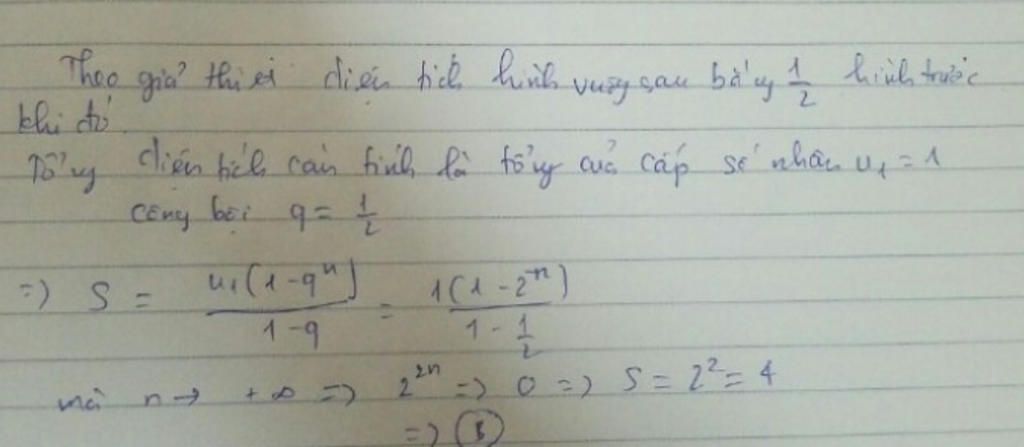 Theo giả thiết diện tích hình vuông sau bằng 1/2 hình trước
khi đó.
Tổng diện tích cần tính là tổng của cấp số nhân u₁ = 1
công bội q = 1/2
=> S = u₁(1-qⁿ)/(1-q) = 1(1-2⁻ⁿ)/(1-1/2)
mà n → +∞ => 2²ⁿ => 0 => S = 2² = 4
=> (B)